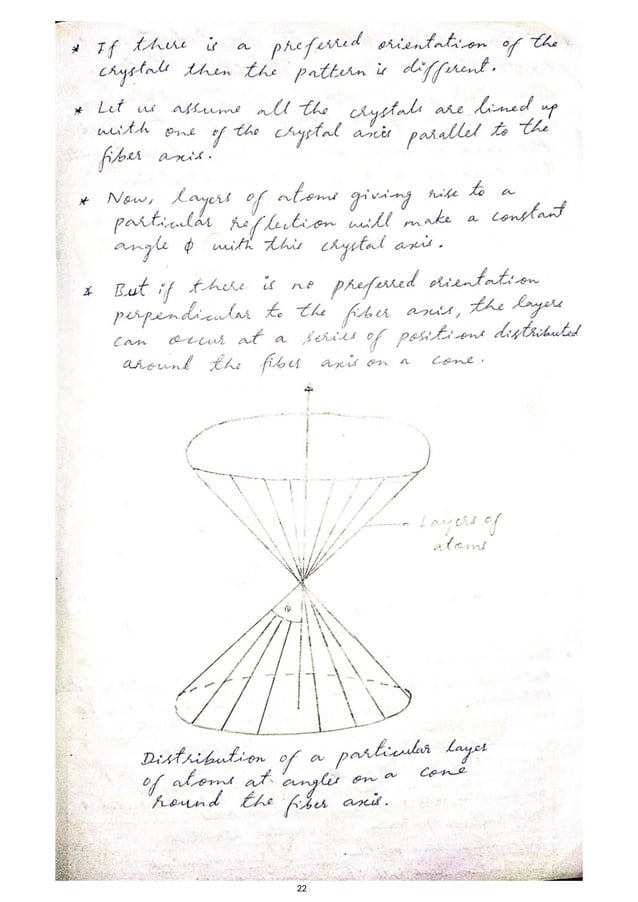 * If there is a preferred orientation of the
crystals then the pattern is different.
* Let us assume all the crystals are lined up
with one of the crystal axis parallel to the
fiber axis.
* Now, layers of atoms giving rise to a
particular reflection will make a constant
angle ϕ with this crystal axis.
* But if there is no preferred orientation
perpendicular to the fiber axis, the layers
can occur at a series of positions distributed
around the fiber axis on a cone.
Layers of
atoms
ϕ
Distribution of a particular layer
of atoms at angles on a cone
round the fiber axis.
22